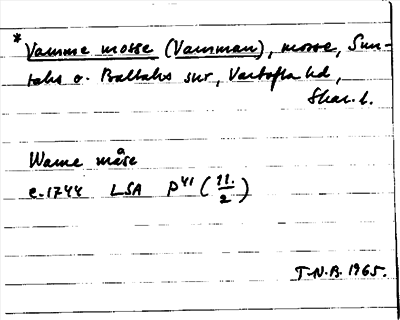 * Vamme mosse (Vamman), mosse, Sun-
taks o. Baltaks snr, Vartofta hd,
Skar. l.
Wame måse
c. 1744 LSA P 41 (11/2)
T.N.B. 1965.